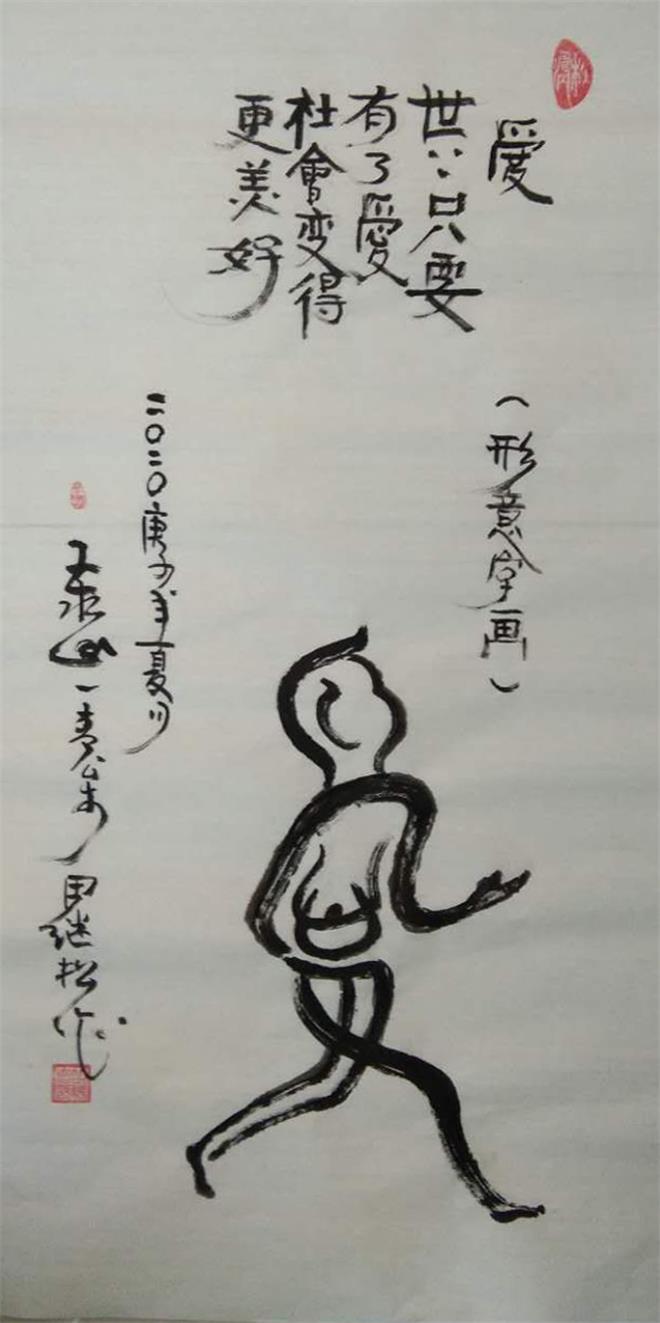 愛
世只要
有了愛
社會变得
更美好
（形意字画）
二〇二〇庚子年夏月
田继松作